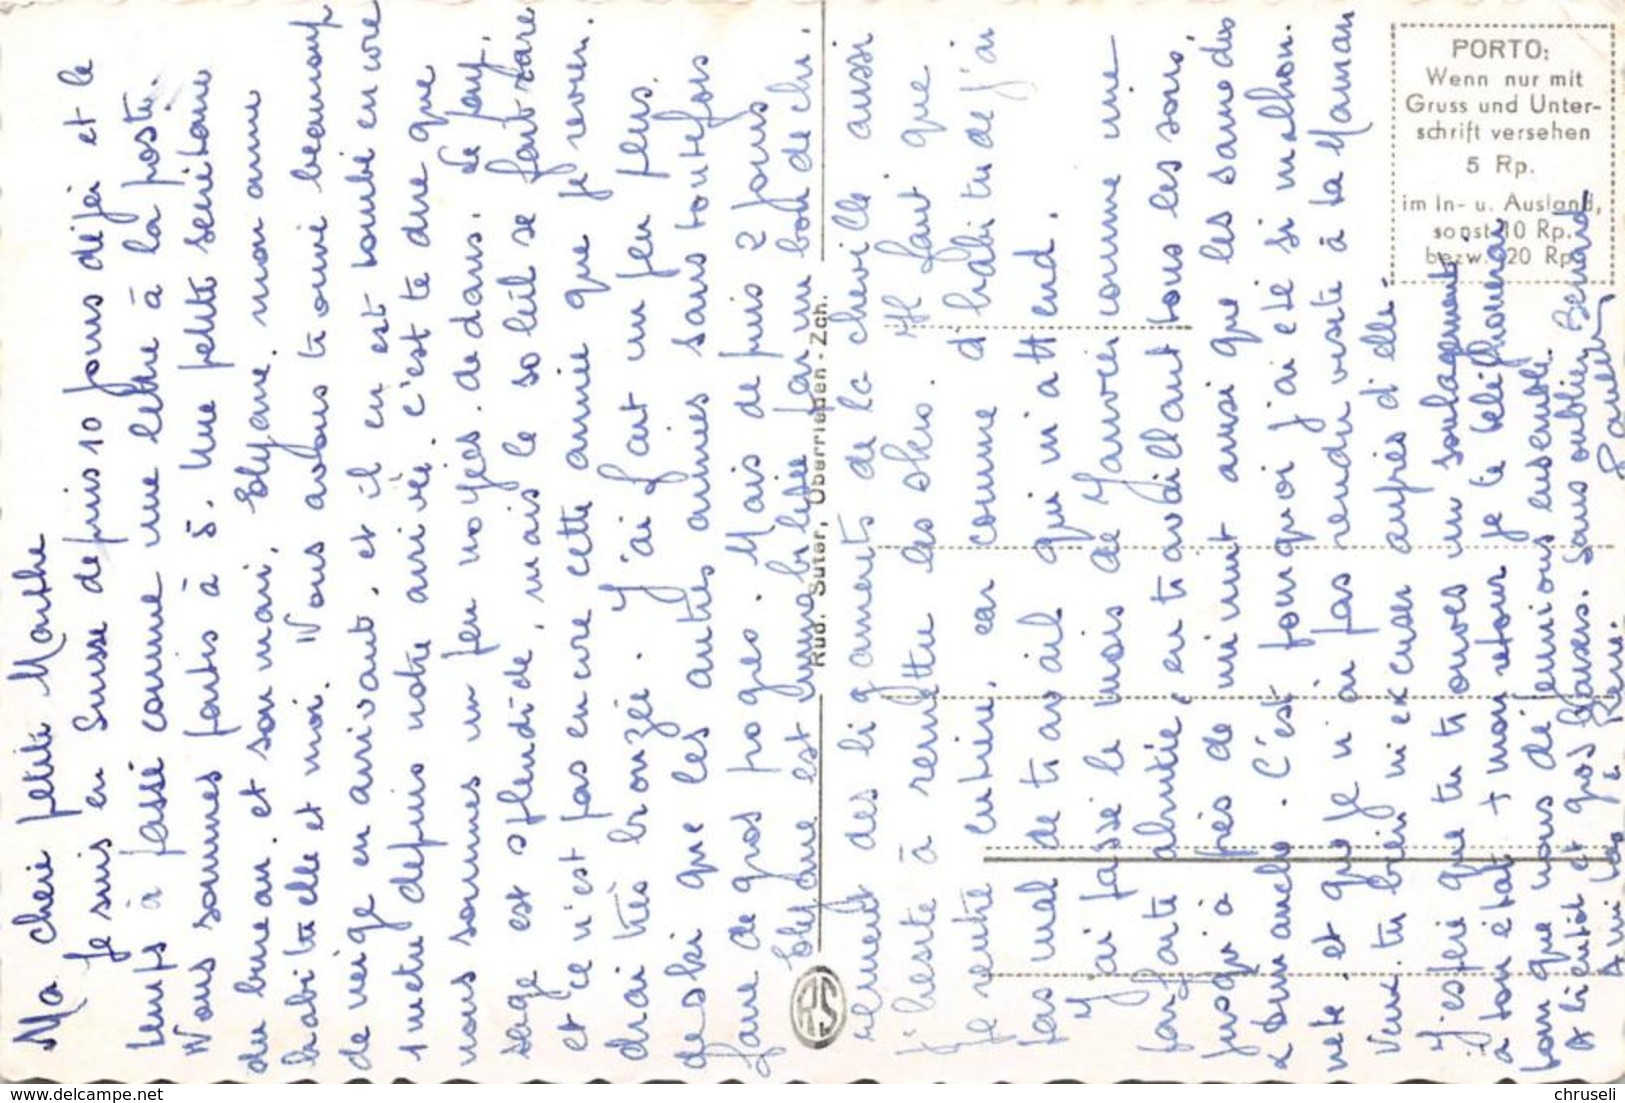 Ma cherie petite Marthe
Je suis en Suisse depuis 10 jours déjà et le
temps à passé comme une lettre à la poste.
Nous sommes partis à 5. Une petite secrétaire
du bureau. et son mari, Elyane, mon amie
habituelle et moi. Nous avons trouvé beaucoup
de neige en arrivant, et il en est tombé encore
1 metre depuis notre arrivée. c'est te dire que
nous sommes un peu noyées dedans. Le pay-
sage est splendide, mais le soleil se fait rare
et ce n'est pas encore cette année que je revien-
drai très bronzée. J'ai fait un peu plus
de ski que les autres années sans toutefois
faire de gros progès. Mais depuis 2 jours
Elyane est immobilisée par un bon dechi-
rement des ligaments de la cheville aussi
j'hesite à remettre les skis. Il faut que
je rentre entière, car comme d'habitude j'ai
pas mal de travail qui m'attend.
J'ai passé le mois de Janvier comme une
parfaite abrutie, en travaillant tous les soirs,
jusqu'à près de minuit ainsi que les samedis
& dimanche. C'est pourquoi j'ai été si malhon-
nete et que je n'ai pas rendu visite à ta Maman
Veux-tu bien m'excuser auprès d'elle.
J'espère que tu trouves un soulagement
à ton état & mon retour je te telephonerai
pour que nous dejeunions ensemble.
A bientôt et gros baisers. Sans oublier Benard
Amities à René.
PORTO:
Wenn nur mit
Gruss und Unter-
schrift versehen
5 Rp.
im In- u. Ausland,
sonst 10 Rp.
bezw. 20 Rp.
Rud. Suter, Oberrieden-Zch.
RS
www.delcampe.net
chruseli